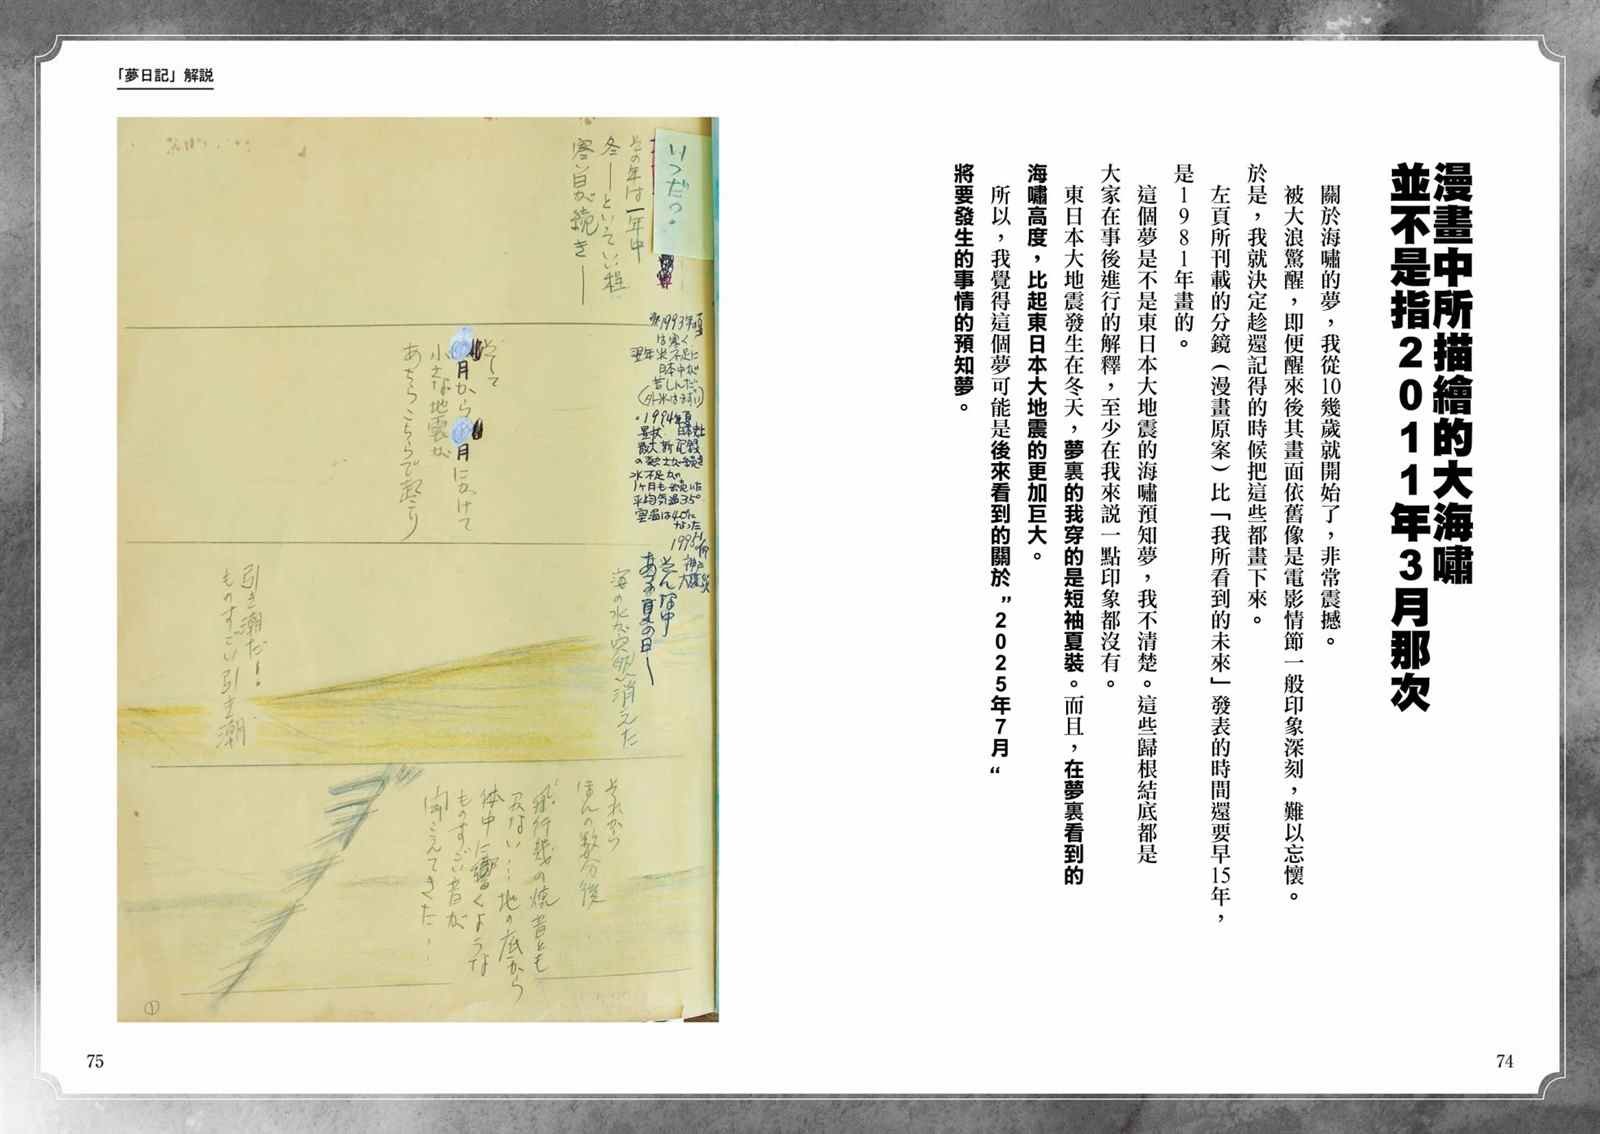 漫畫中所描繪的大海嘯
並不是指2011年3月那次
關於海嘯的夢，我從10幾歲就開始了，非常震撼。
被大浪驚醒，即便醒來後其畫面依舊像是電影情節一般印象深刻，難以忘懷。
於是，我就決定趁還記得的時候把這些都畫下來。
左頁所刊載的分鏡（漫畫原案）比「我所看到的未來」發表的時間還要早15年，
是1981年畫的。
這個夢是不是東日本大地震的海嘯預知夢，我不清楚。這些歸根結底都是
大家在事後進行的解釋，至少在我來説一點印象都沒有。
東日本大地震發生在冬天，夢裏的我穿的是短袖夏裝。而且，在夢裏看到的
海嘯高度，比起東日本大地震的更加巨大。
所以，我覺得這個夢可能是後來看到的關於”2025年7月“
將要發生的事情的預知夢。
74
「夢日記」解説
いつだっ?
その年は一年中
冬—といってい程
寒い日が続き—
※1993年夏
は寒く
翌年米不足に
日本中が
苦しんだ。
(外米はまずい)
・1994年夏
最大新記録
水不足が
1ヶ月も続いた
平均気温35°
室温は40°に
なった
1995年
神戸
大震災
そして
月から月にかけて
小さな地震が
あちらこちらで起こり
そんな中
ある夏の日—
海の水が突然消えた
引き潮だ!
ものすごい引き潮
それから
ほんの数分後
飛行機の爆音とも
つかない…地の底から
体中に響くような
ものすごい音が
聞こえてきた…
①
75